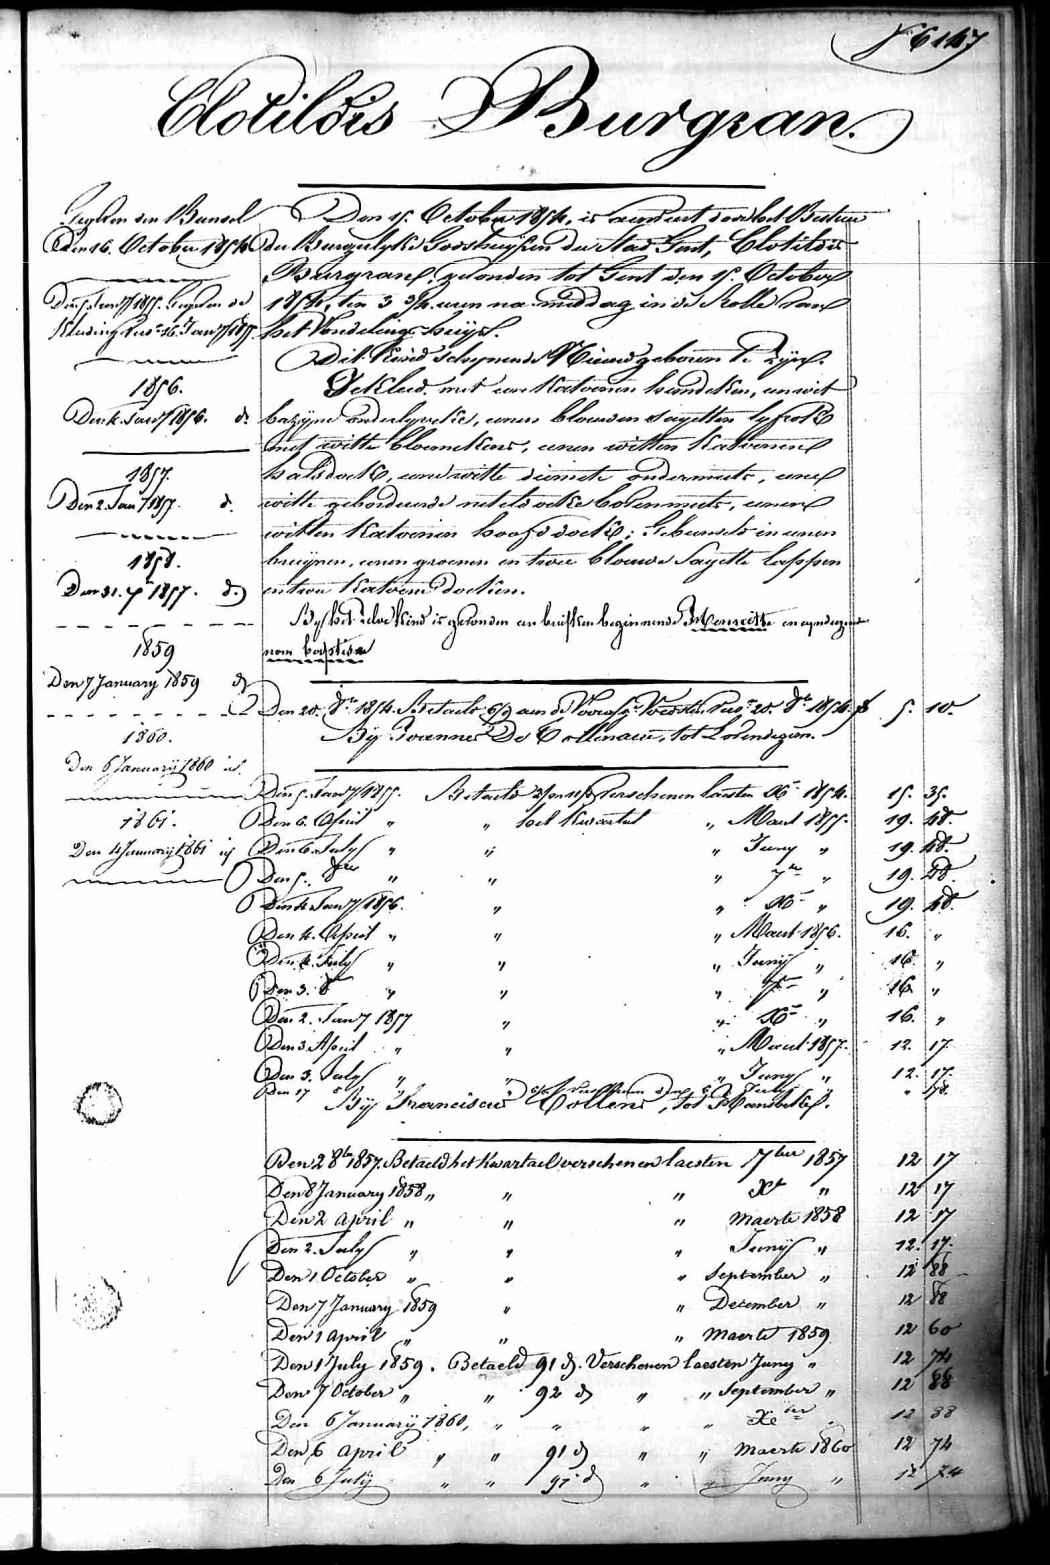 N° 6147
Clotildis Burgran.
Gegeven den Bunsel
Den 16. October 1854
Den 5 Jan.y 1855. Gegeven de
Kleeding
1856.
Den 4. Jan.y 1856. d.
1857.
Den 2. Jan.y 1857. d.
1858.
Den 31. 1857. d.
1859
Den 7 January 1859 d
1860.
Den 6 January 1860 id.
1861.
Den 4 January 1861 id
Den 15. October 1854, is aenveert door het Bestier
der Burgelyke Godshuysen der Stad Gent, Clotildis
Burgran, gevonden tot Gent den 15. October
1854, ten 3 3/4 uren na middag in de Rolle van
het Vondelinge huys.
Dit Kind schynende Nieuwgeboren te zyn.
Gekleed met een Katoenen hemdeken, een wit
bazyne onderlyveke, eenen blauwen sayetten lyfrok
met witte bloemekens, eenen witten Katoenen
halsdoek, eene witte diemete ondermuts, eene
witte geborduerde neteldoeke bovenmuts, eenen
witten Katoenen hoofddoek; Gebunseld in eenen
bruynen, eenen groenen en twee blauwe Sayette lappen
en twee Katoene doeken.
By het zelve kind is gevonden een briefken beginnende Henriette en eyndigende
nom baptême
Den 20. 8.bre 1854. Betaeld aen de Voedster 20. 8.bre 1854. f 5. 10.
Bij Joannes De Collenaere, tot Lovendegem.
Den 5. Jan.y 1855. Betaeld verschenen laesten X.bre 1854. 15. 35.
Den 6. April " " het Kwartael " Maert 1855. 19. 48.
Den 6. July " " " Juny " 19. 48.
Den 5. 8bre " " " 7.bre " 19. 48.
Den 4. Jan.y 1856. " " X.bre " 19. 48.
Den 4. April " " " Maert 1856. 16. "
Den 4. July " " " Junij " 16. "
Den 3. 8.bre " " " 7.bre " 16. "
Den 2. Jan.y 1857 " " X.bre " 16. "
Den 3. April " " " Maert 1857. 12. 17.
Den 3. July " " " Juny " 12. 17.
Den 17 " July " " 78.
Bij Franciscus Collens, tot
Den 2 8bre 1857. Betaeld het Kwartael verschenen laesten 7ber 1857 12 17
Den 8 January 1858 " " " Xr " 12 17
Den 2 april " " " maerte 1858 12 17
Den 2. July " " " Junij " 12. 17.
Den 1 October " " " September " 12 88
Den 7 January 1859 " " December " 12 88
Den 1 april " " " maerte 1859 12 60
Den 1 July 1859. Betaeld 91 d. Verschenen laesten Juny " 12 74
Den 7 October " " 92 d " " September " 12 88
Den 6 Januarij 1860, " " " " Xber " 12 88
Den 6 april " " 91 d " " maerte 1860 12 74
Den 6 July " " 91 d " " Juny " 12 74